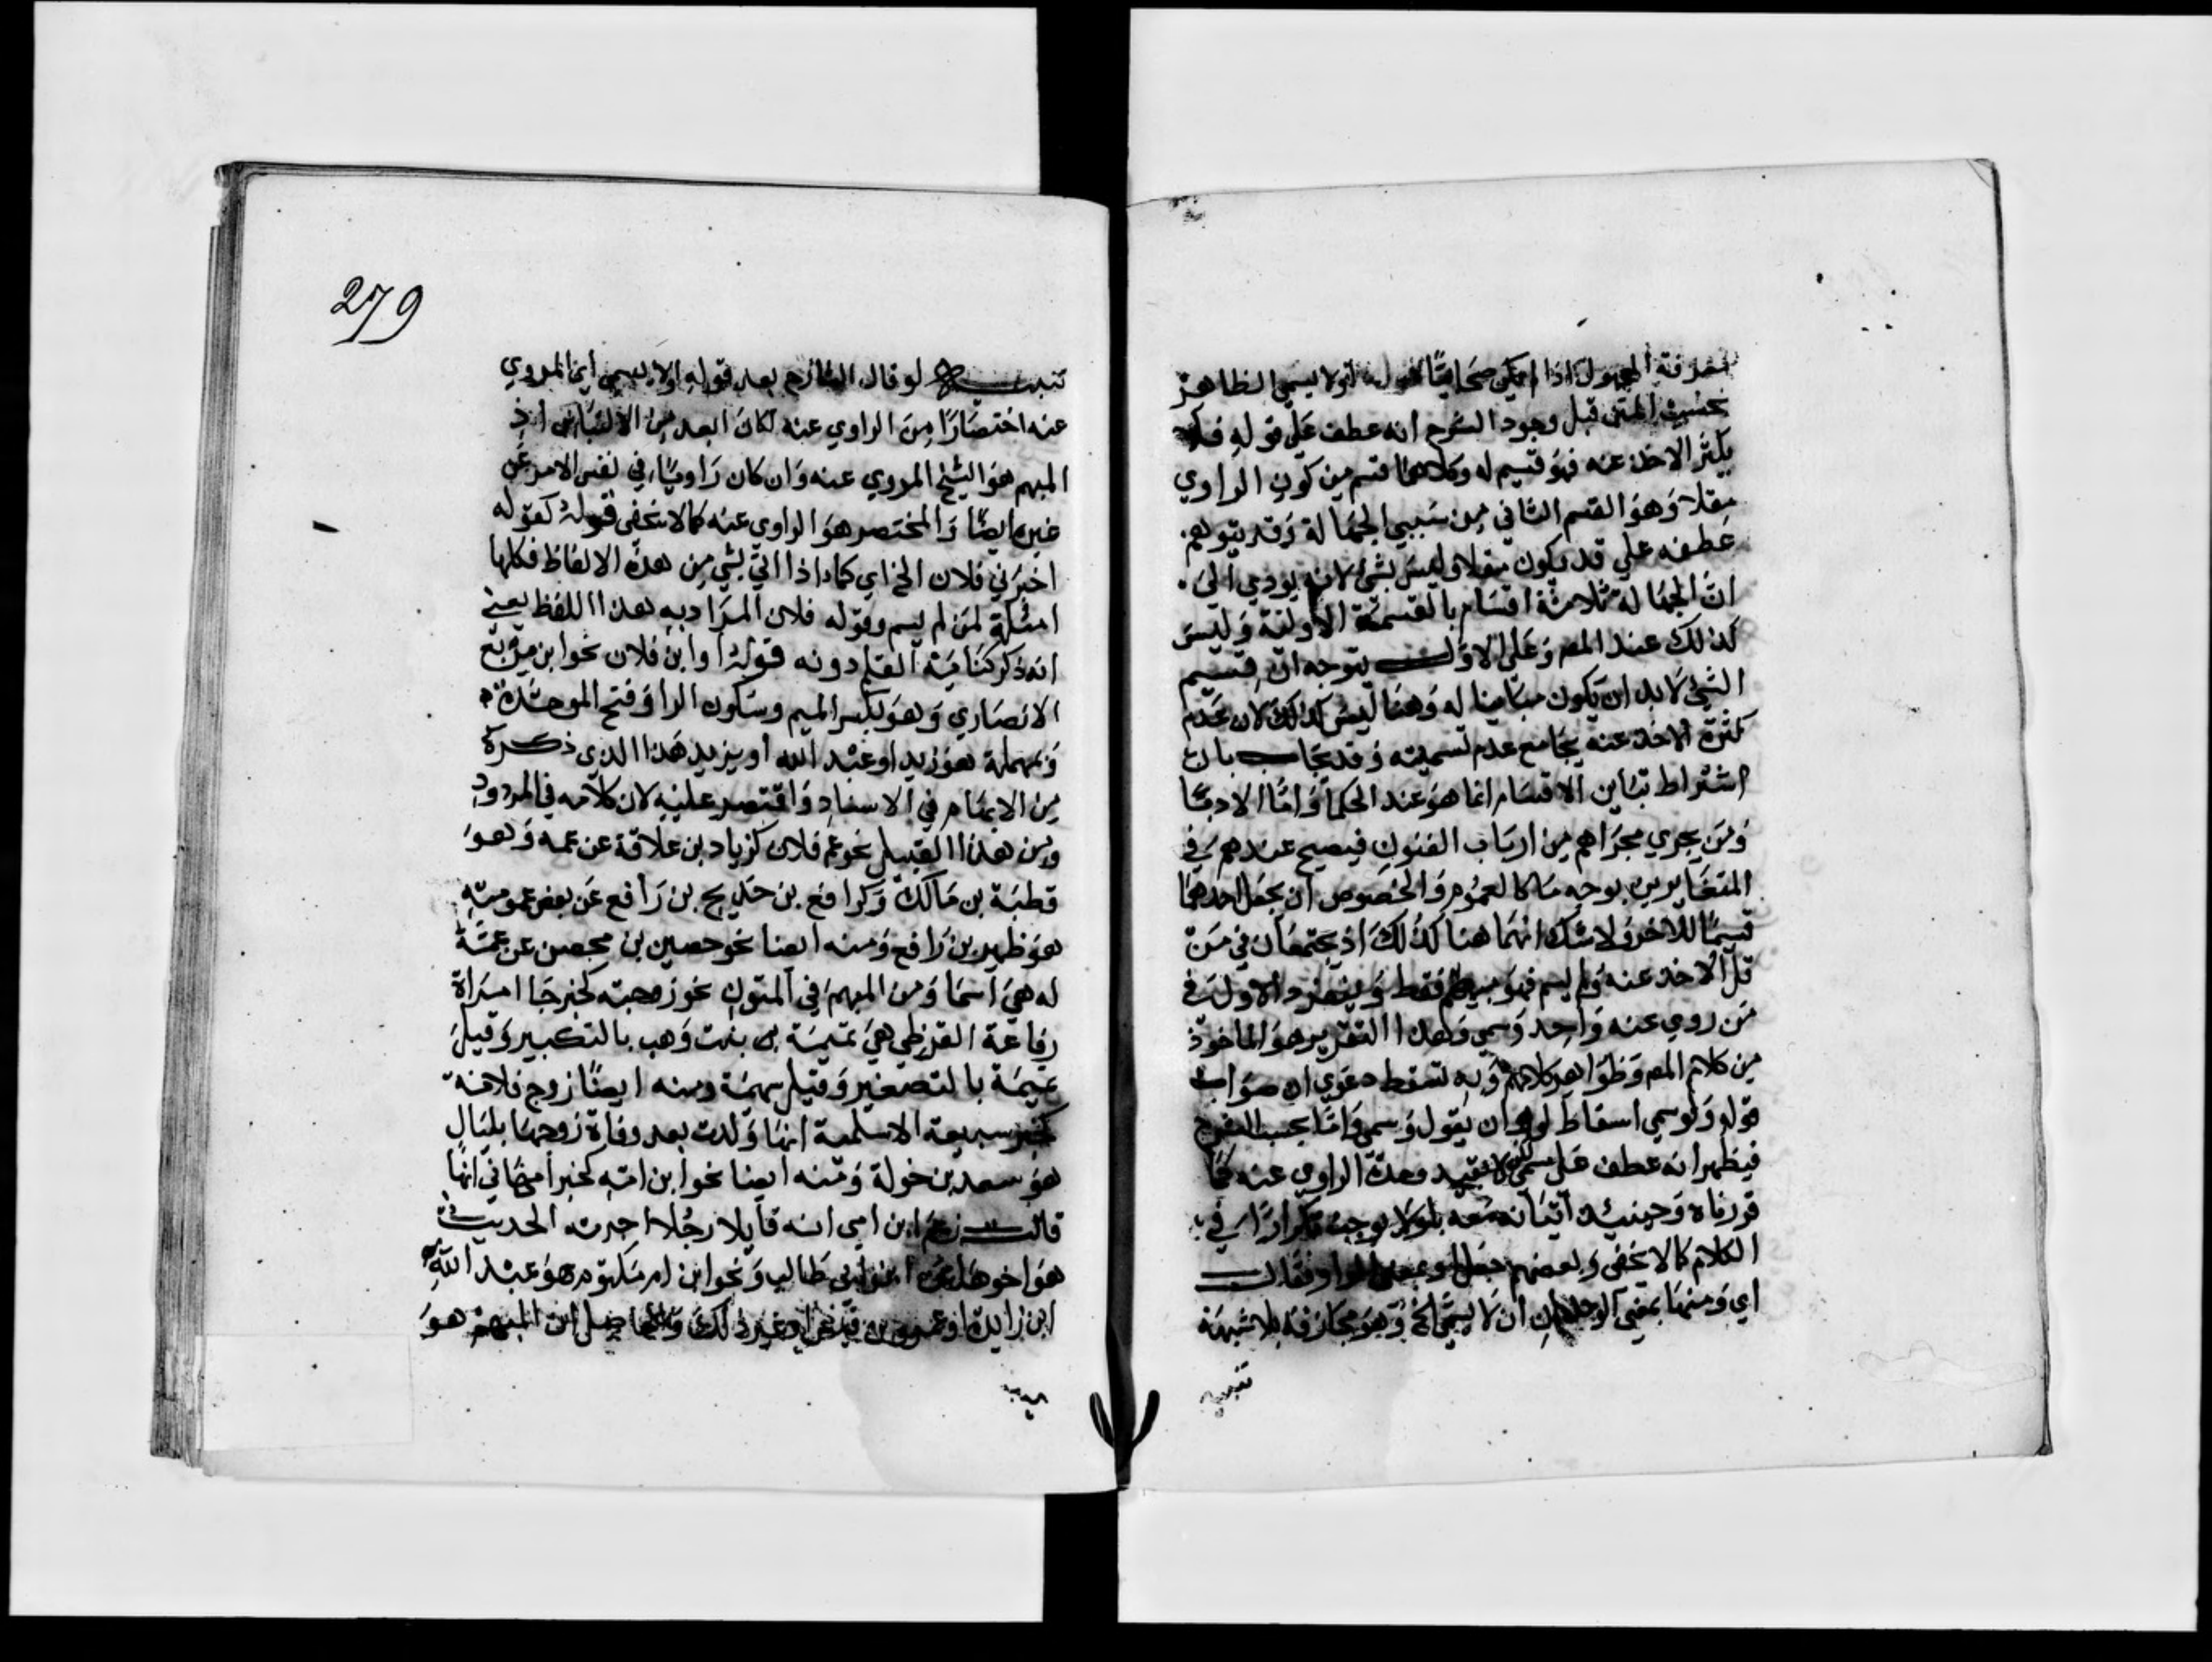 معرفة المجهول اذا لم يكن صحابيا قوله اولا يسمي الظاهر
بحسب المتن قبل وجود الشرح انه عطف علي قوله فلا
يكثر الاخذ عنه فهو قسيم له وكلاهما قسم من كون الراوي
مقلا وهو القسم الثاني من سببي الجهالة وقد يتوهم
عطفه علي قد يكون مقلا وليس بشئ لانه يودي الي
ان الجهالة ثلاثة اقسام بالقسمة الاولية وليس
كذلك عند المص وعلي الاول يتوجه ان قسيم
الشئ لابد ان يكون مباينا له وهنا ليس كذلك لان عدم
كثرة الاخذ عنه يجامع عدم تسميته وقد يجاب بان
اشتراط تباين الاقسام انما هو عند الحكما واما الادبا
ومن يجري مجراهم من ارباب الفنون فيصح عندهم في
المتغايرين بوجه ما كالعموم والخصوص ان يجعل احدهما
قسيما للاخر ولا شك انهما هنا كذلك اذ يجتمعان في من
قل الاخذ عنه ولم يسم فهو مبهم فقط وينفرد الاول في
من روي عنه واحد وسمي وهذا التقرير هو الماخوذ
من كلام المص وظواهر كلامهم وبه تسقط دعوي ان صواب
قوله ولو سمي اسقاط لو وان يقول وسمي واما بحسب الشرح
فيظهر انه عطف علي سمي لا بقيد وحدة الراوي عنه كما
قررناه وحينئذ اتيانه معه بلولا يوجب تكرارا في
الكلام كما لا يخفي وبعضهم جعل او بمعني الواو فقال
اي ومنها بمعني الوحدان ان لا يسمي الخ وهو مجازفة بلا شبهة
تنبيه
279
تنبيه لو قال الشارح بعد قوله اولا يسمي اي المروي
عنه اختصارا من الراوي عنه لكان ابعد من الالتباس اذ
المبهم هو الشيخ المروي عنه وان كان راويا في نفس الامر عن
غيره ايضا والمختصر هو الراوي عنه كما لا يخفي قوله كقوله
اخبرني فلان الخ اي كما اذا اتي بشي من هذه الالفاظ فكلها
امثلة لمن لم يسم وقوله فلان المراد به هذا اللفظ يعني
انه ذكر كناية العلم دونه قوله او ابن فلان نحو ابن مربع
الانصاري وهو بكسر الميم وسكون الرا وفتح الموحدة
ومهملة هو زيد او عبد الله او يزيد هذا الذي ذكره
من الابهام في الاسناد واقتصر عليه لان كلامه في المردود
ومن هذا القبيل نحو عم فلان كزياد بن علاقة عن عمه وهو
قطبة بن مالك وكرافع بن خديج بن رافع عن بعض عمومته
هو ظهير بن رافع ومنه ايضا نحو حصين بن محصن عن عمة
له هي اسما ومن المبهم في المتون نحو زوجته كخبر جا امراة
رفاعة القرظي هي تميمة بنت وهب بالتكبير وقيل
تميمة بالتصغير وقيل سهيمة ومنه ايضا زوج فلانة
كخبر سبيعة الاسلمية انها ولدت بعد وفاة زوجها بليال
هو سعد بن خولة ومنه ايضا نحو ابن امه كخبر ام هاني انها
قالت زعم ابن امي انه قاتلا رجلا اجرته الحديث
هو اخوها علي ابن ابي طالب ونحو ابن ام مكتوم هو عبد الله
ابن زايدة او عمرو بن قيس او غير ذلك والحاصل ان المبهم هو